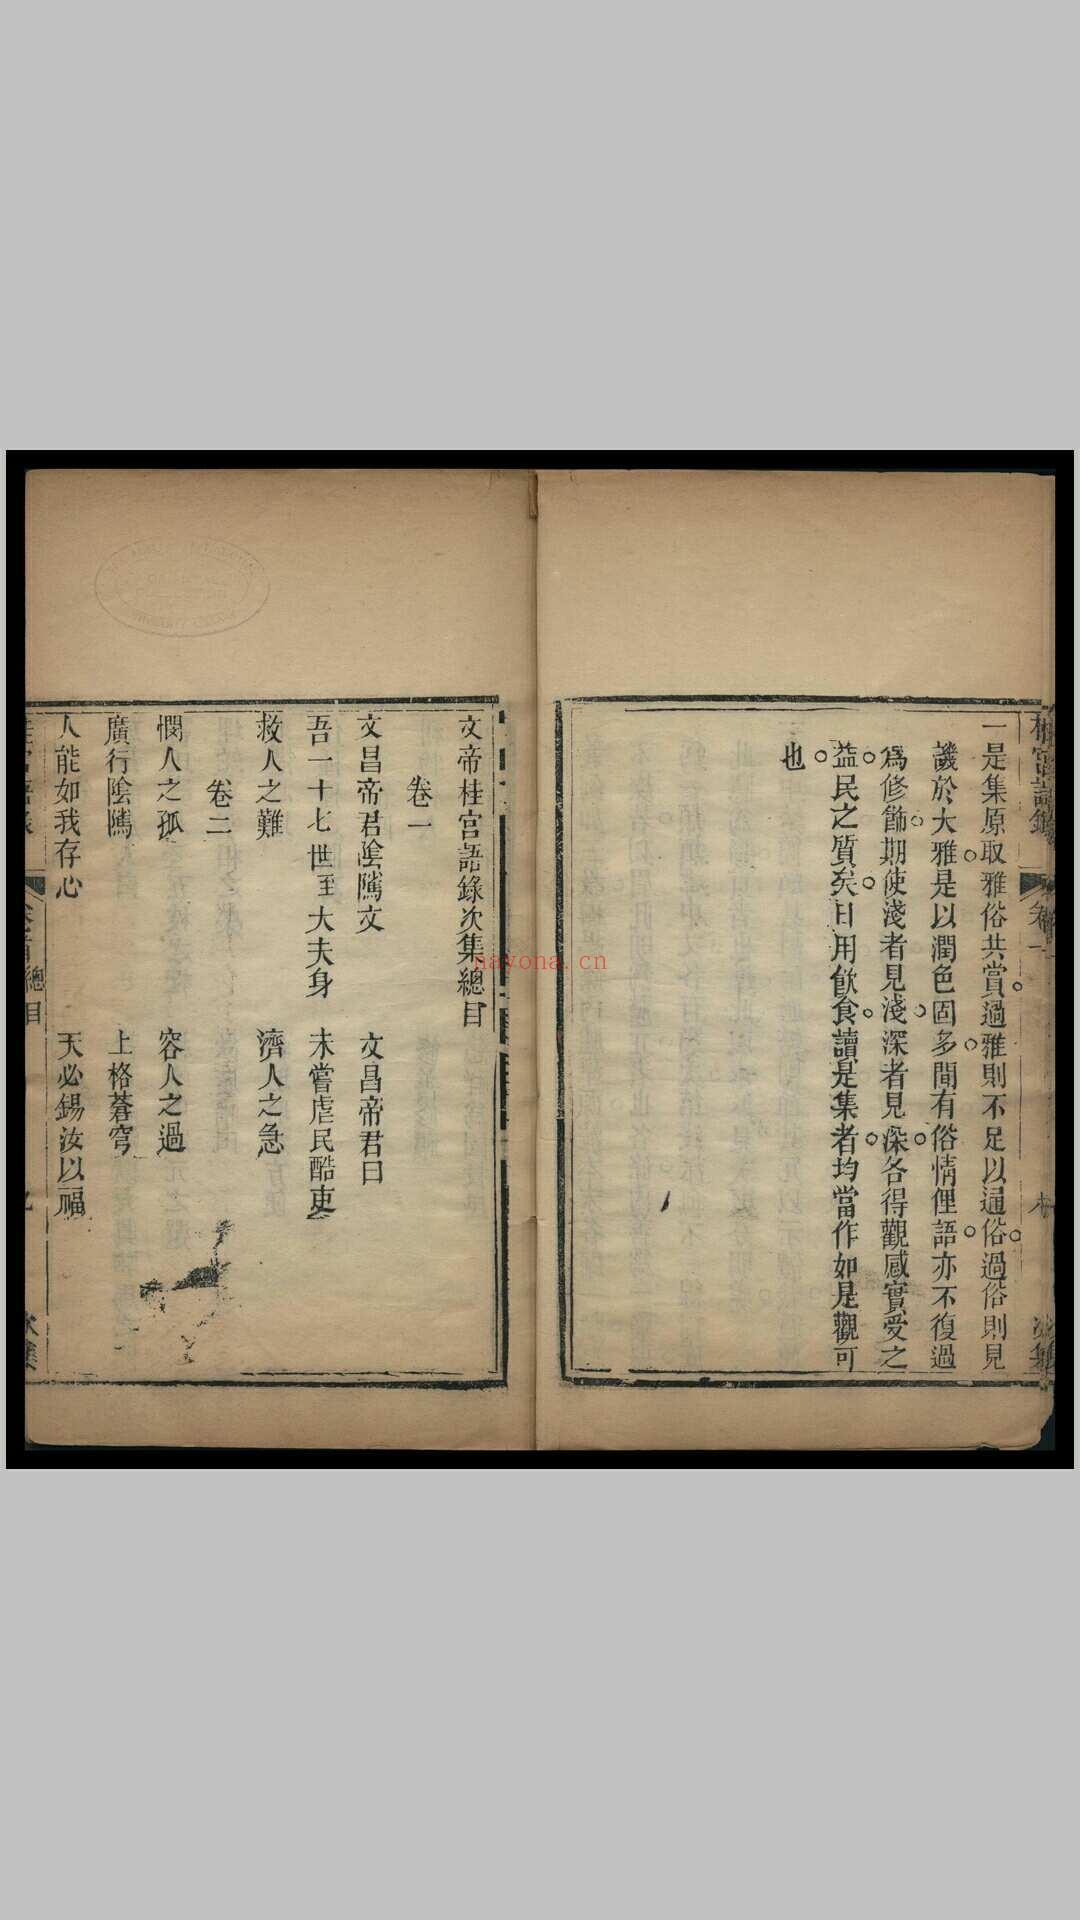 一是集原取雅俗共賞過雅則不足以通俗過俗則見
譏於大雅是以潤色固多間有俗情俚語亦不復過
爲修飾期使淺者見淺深者見深各得觀感實受之
益民之質矣日用飲食讀是集者均當作如是觀可
也
文帝桂宮語錄次集總目
卷一
文昌帝君陰隲文 文昌帝君曰
吾一十七世至大夫身 未嘗虐民酷吏
救人之難 濟人之急
卷二
憫人之孤 容人之過
廣行陰隲 上格蒼穹
人能如我存心 天必錫汝以福
總目
nayona.cn